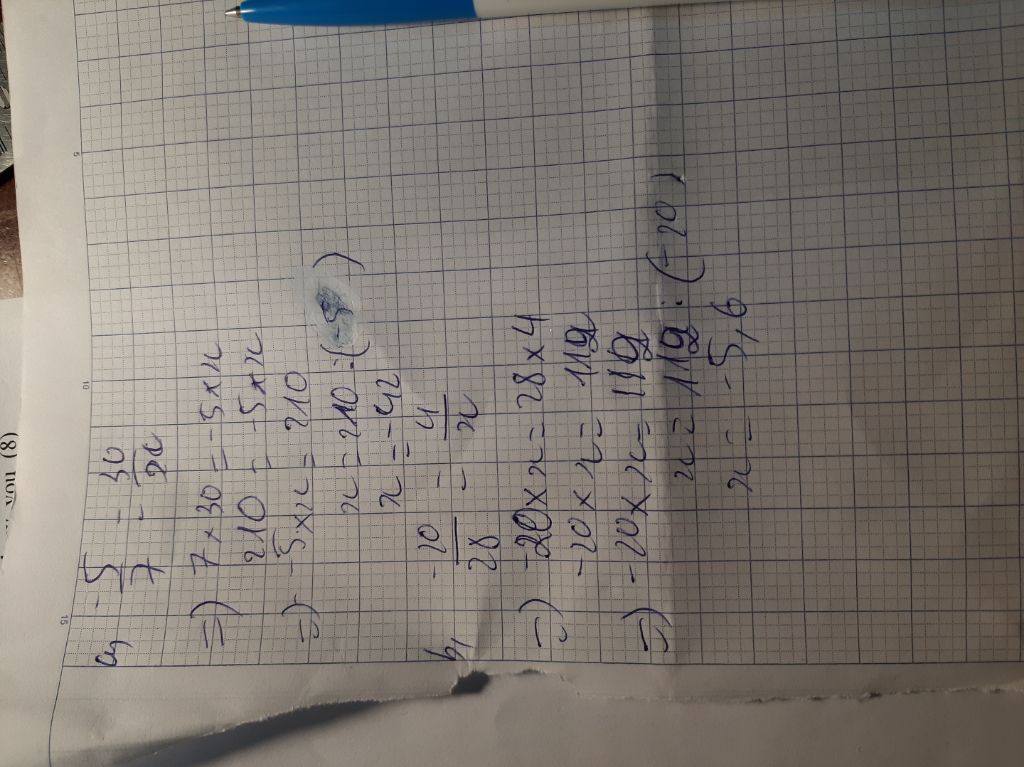 a, -5/7 = 30/x
=) 7 x 30 = -5 x x
210 = -5 x x
=) -5 x x = 210
x = 210 : (-5)
x = -42
b, -20/28 = 4/x
=) -20 x x = 28 x 4
-20 x x = 112
=) -20 x x = 112
x = 112 : (-20)
x = -5,6
you (8)
5
10
15